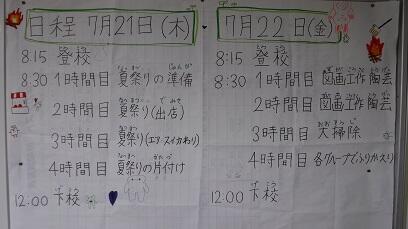 日程 7月21日(木)
8:15 登校
8:30 1時間目 夏祭りの準備
2時間目 夏祭り(出店)
3時間目 夏祭り(エアースイカわり)
4時間目 夏祭りの片付け
12:00 下校
7月22日(金)
8:15 登校
8:30 1時間目 図画工作 陶芸
2時間目 図画工作 陶芸
3時間目 大掃除
4時間目 各グループでふりかえり
12:00 下校